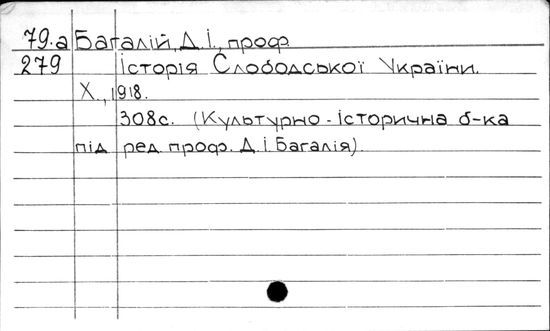 79.а Багалій, Д. І., проф.
279 Історія Слободської України.
Х., 1918.
308с. (Культурно-історична б-ка
під ред. проф. Д. І. Багалія).